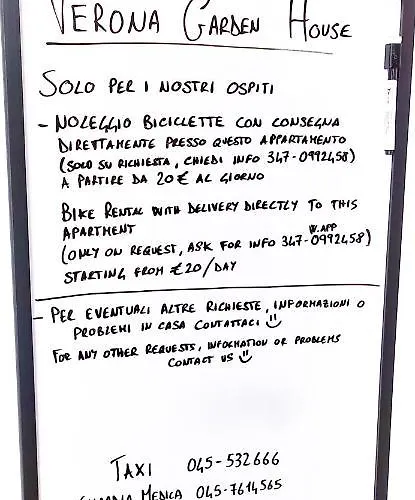 VERONA GARDEN HOUSE
SOLO PER I NOSTRI OSPITI
- NOLEGGIO BICICLETTE CON CONSEGNA
DIRETTAMENTE PRESSO QUESTO APPARTAMENTO
(SOLO SU RICHIESTA, CHIEDI INFO 347-0992458)
A PARTIRE DA 20€ AL GIORNO
BIKE RENTAL WITH DELIVERY DIRECTLY TO THIS
APARTMENT
W.APP
(ONLY ON REQUEST, ASK FOR INFO 347-0992458)
STARTING FROM €20/DAY
- PER EVENTUALI ALTRE RICHIESTE, INFORMAZIONI O
PROBLEMI IN CASA CONTATTACI
FOR ANY OTHER REQUESTS, INFORMATION OR PROBLEMS
CONTACT US
TAXI 045-532666
GUARDIA MEDICA 045-7614565